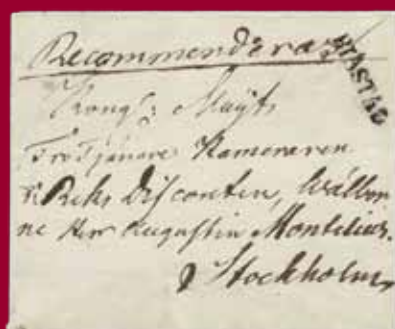 Recommenderas
YSTAD
Kongl: Maÿts
Trotjänare Kamereraren
Riks Discontens, Wälbor
ne Herr Augustin Montelius.
Stockholm